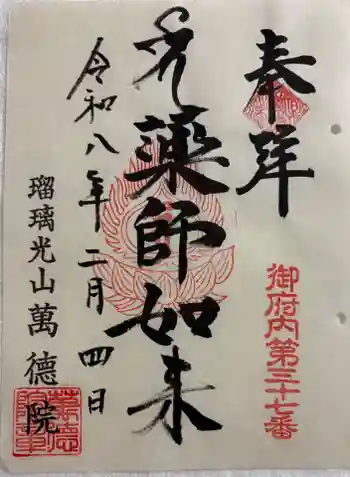 奉拝
御府内第三十七番
薬師如来
令和八年二月四日
瑠璃光山萬德院